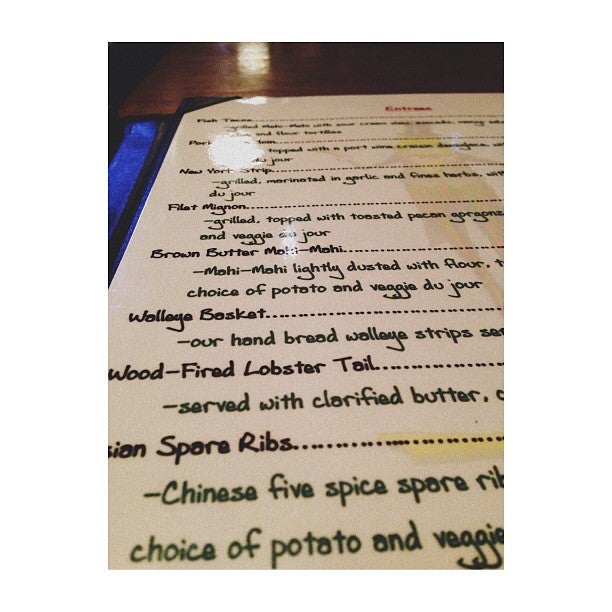 Entrees
Fish Tacos
-grilled Mahi-Mahi with sour cream
and flour tortillas
topped with a port wine
du jour
New York Strip
-grilled, marinated in garlic and fines herbs, with
du jour
Filet Mignon
-grilled, topped with toasted pecan gorgonz
and veggie du jour
Brown Butter Mahi-Mahi
-Mahi-Mahi lightly dusted with flour, t
choice of potato and veggie du jour
Walleye Basket
-our hand bread walleye strips ser
Wood-Fired Lobster Tail
-served with clarified butter, c
sian Spare Ribs
-Chinese five spice spare rib
choice of potato and veggie